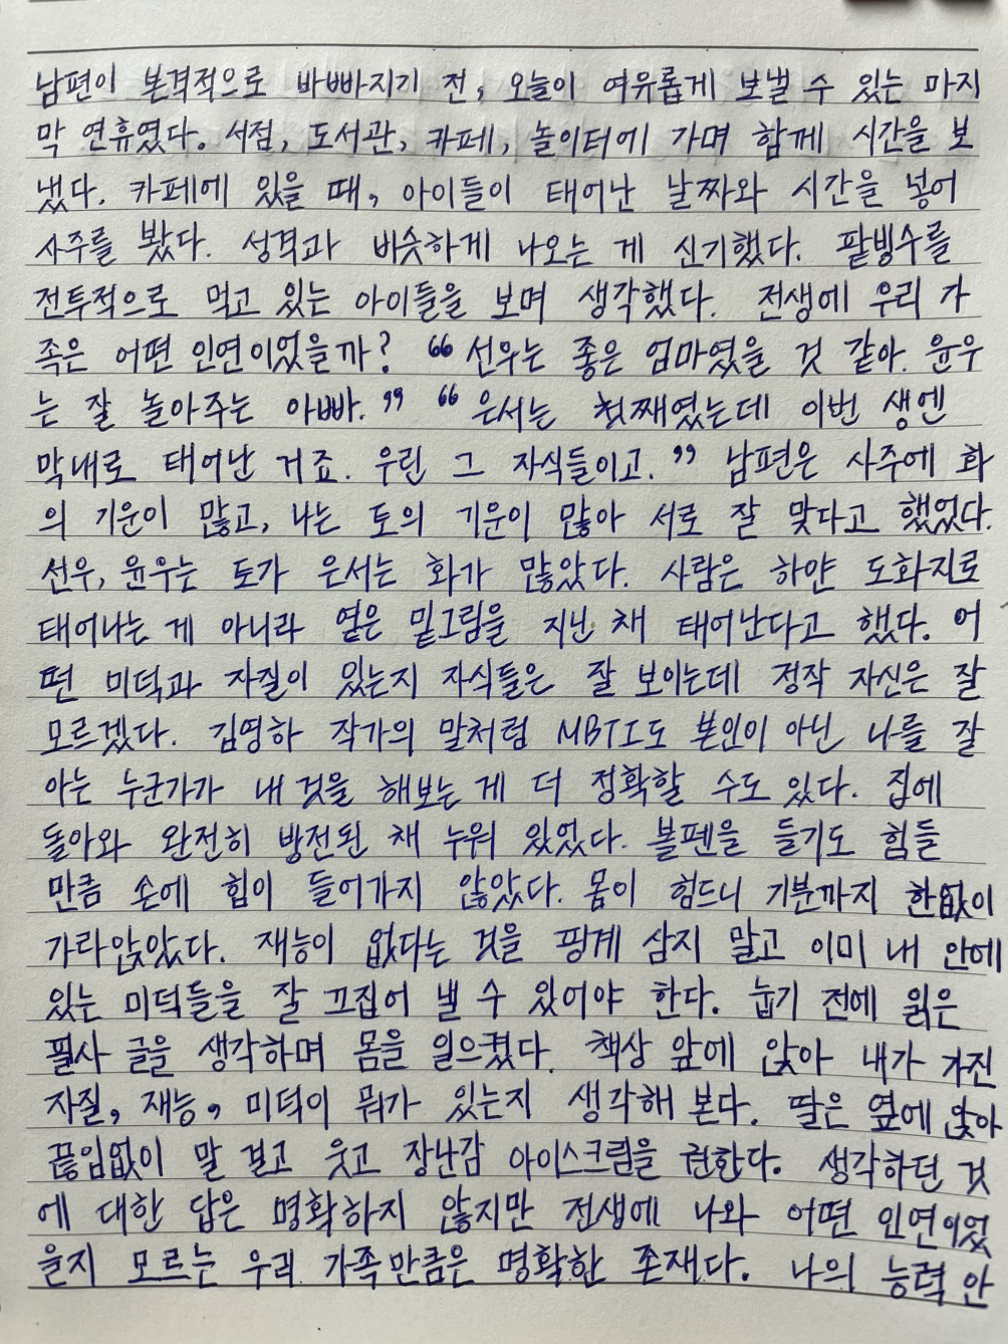 남편이 본격적으로 바빠지기 전, 오늘이 여유롭게 보낼 수 있는 마지
막 연휴였다. 서점, 도서관, 카페, 놀이터에 가며 함께 시간을 보
냈다. 카페에 있을 때, 아이들이 태어난 날짜와 시간을 넣어
사주를 봤다. 성격과 비슷하게 나오는 게 신기했다. 팥빙수를
전투적으로 먹고 있는 아이들을 보며 생각했다. 전생에 우리 가
족은 어떤 인연이었을까? “선우는 좋은 엄마였을 것 같아. 윤우
는 잘 놀아주는 아빠.” “은서는 첫째였는데 이번 생엔
막내로 태어난 거죠. 우린 그 자식들이고.” 남편은 사주에 화
의 기운이 많고, 나는 토의 기운이 많아 서로 잘 맞다고 했었다.
선우, 윤우는 토가 은서는 화가 많았다. 사람은 하얀 도화지로
태어나는 게 아니라 옅은 밑그림을 지닌 채 태어난다고 했다. 어
떤 미덕과 자질이 있는지 자식들은 잘 보이는데 정작 자신은 잘
모르겠다. 김영하 작가의 말처럼 MBTI도 본인이 아닌 나를 잘
아는 누군가가 내 것을 해보는 게 더 정확할 수도 있다. 집에
돌아와 완전히 방전된 채 누워 있었다. 볼펜을 들기도 힘들
만큼 손에 힘이 들어가지 않았다. 몸이 힘드니 기분까지 한없이
가라앉았다. 재능이 없다는 것을 핑계 삼지 말고 이미 내 안에
있는 미덕들을 잘 끄집어 낼 수 있어야 한다. 눕기 전에 읽은
필사 글을 생각하며 몸을 일으켰다. 책상 앞에 앉아 내가 가진
자질, 재능, 미덕이 뭐가 있는지 생각해 본다. 딸은 옆에 앉아
끊임없이 말 걸고 웃고 장난감 아이스크림을 권한다. 생각하던 것
에 대한 답은 명확하지 않지만 전생에 나와 어떤 인연이었
을지 모르는 우리 가족만큼은 명확한 존재다. 나의 능력 안